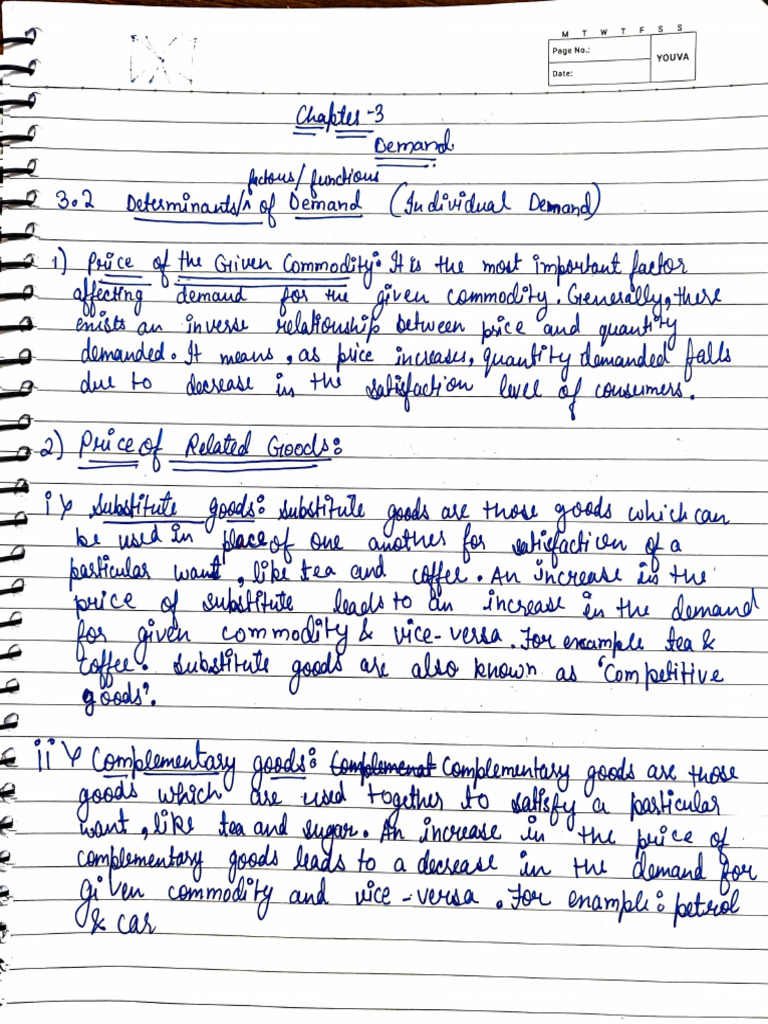 M T W T F S S
Page No.:
YOUVA
Date:
Chapter -3
Demand
factors/ functions
3.2 Determinants/^ of Demand (Individual Demand)
1) Price of the Given Commodity: It is the most important factor
affecting demand for the given commodity. Generally, there
exists an inverse relationship between price and quantity
demanded. It means, as price increases, quantity demanded falls
due to decrease in the satisfaction level of consumers.
2) Price of Related Goods:
i> Substitute goods: substitute goods are those goods which can
be used in place of one another for satisfaction of a
particular want, like tea and coffee. An increase in the
price of substitute leads to an increase in the demand
for given commodity & vice-versa. For example tea &
coffee. Substitute goods are also known as 'Competitive
goods'.
ii> Complementary goods: Complemenat complementary goods are those
goods which are used together to satisfy a particular
want, like tea and sugar. An increase in the price of
complementary goods leads to a decrease in the demand for
given commodity and vice-versa. For example: petrol
& car